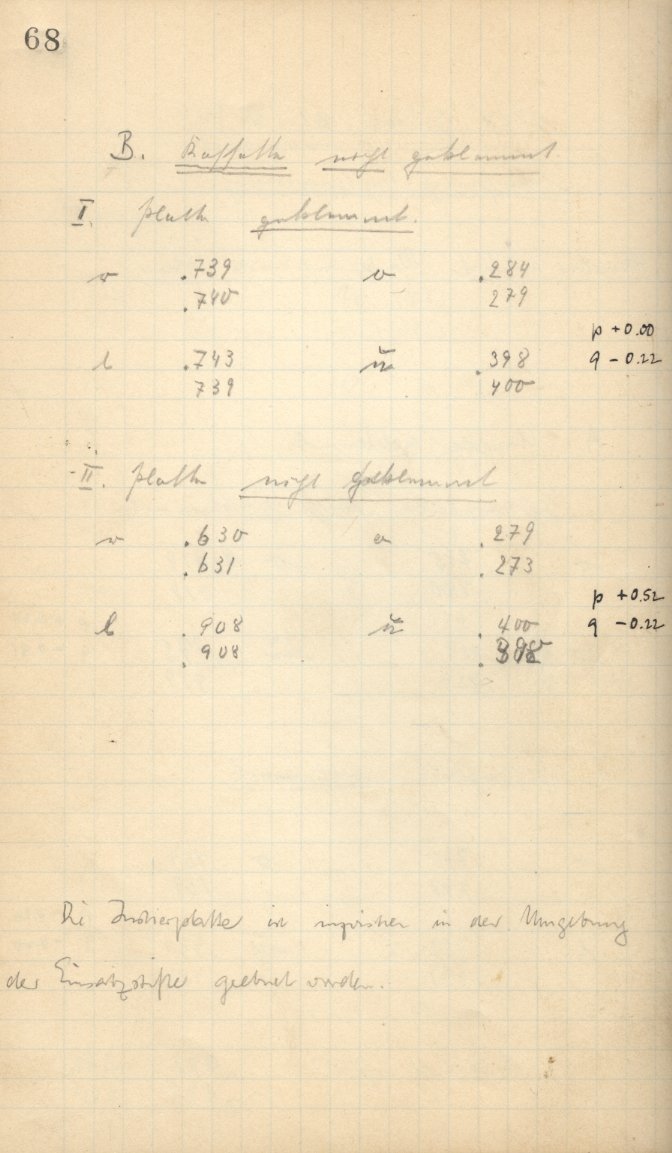 68
B. Kassette nicht geklemmt
I. Platte geklemmt.
r .739 o .284
.740 279
p +0.00
l .743 u .398 q -0.22
739 400
II. Platte nicht geklemmt
r .630 o .279
.631 .273
p +0.52
l .908 ŭ .400 q -0.22
.908 .398
Die ist inzwischen in der Umgebung
der Einsatzstifte geebnet worden.